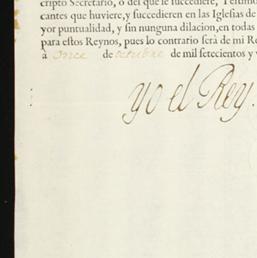 cripto Secretario, o del que le succediere, Testimo
cantes que huviere, y succedieren en las Iglesias de
yor puntualidad, y sin ninguna dilacion, en todas
para estos Reynos, pues lo contrario serà de mi Re
à once de octubre de mil setecientos y v
yo el Rey.